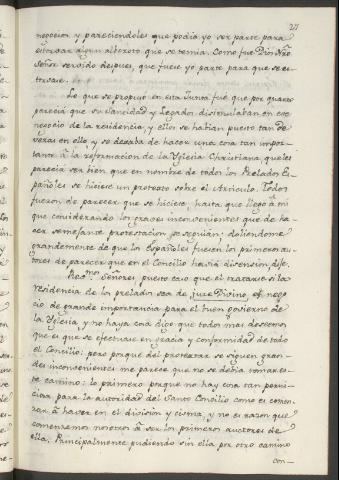 27
negocios y pareciendoles que podia yo ser parte para
estorbar algun alboroto que se temia. Como fue Dios Nro
Señor servido despues, que fuese yo parte para que se es-
torvase.
Lo que se propuso en esta Junta fué que por quanto
parecia que su Santidad y Legados disimulaban en este
negocio de la residencia, y ellos se habian puesto tan de
veras en ello y se dexaba de hacer una cosa tan impor-
tante á la reformacion de la Yglesia Christiana, que les
parecia ser bien que en nombre de todos los Prelados Es-
pañoles se hiciese un protesto sobre el Articulo. Todos
fueron de parecer que se hiciese, hasta que llegó á mi
que considerando los graves inconvenientes que de ha-
cer semejante protestacion se seguian, doliendome
grandemente de que los Españoles fuesen los primeros au-
tores de parecer que en el Concilio havia disension, dije.
Rmos Señores, puesto caso que el tratarse si la
residencia de los prelados sea de jure Divino, es nego
cio de grande importancia para el buen govierno de
la Yglesia y no haya cosa digo que todos mas deseemos
que es que se efectuase en gracia y conformidad de todo
el Concilio: pero porque del protestar se siguen gran-
des inconvenientes me parece que no se debia tomar es-
te camino: lo primero porque no hay cosa tan perni-
ciosa para la autoridad del Santo Concilio como es comen-
zar á haver en él division y cisma, y no es razon que
comenzemos nosotros á ser los primeros auctores de
ella. Principalmente pudiendo sin ella por otro camino
con-